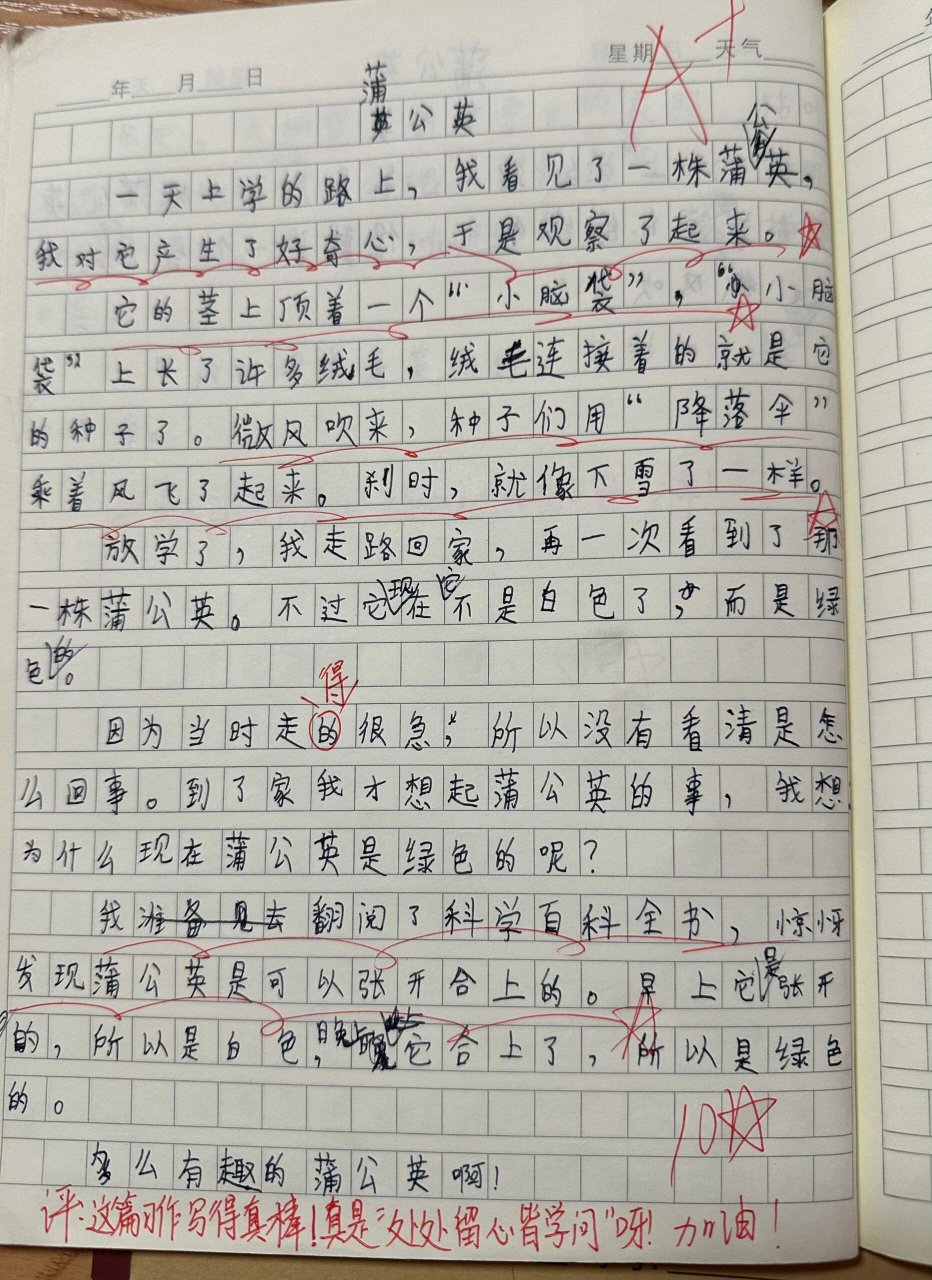 年 月 日 星期 天气
A+
蒲公英
一天上学的路上，我看见了一株蒲公英，
我对它产生了好奇心，于是观察了起来。
它的茎上顶着一个“小脑袋”，“小脑
袋”上长了许多绒毛，绒毛连接着的就是它
的种子了。微风吹来，种子们用“降落伞”
乘着风飞了起来。刹时，就像下雪了一样。
放学了，我走路回家，再一次看到了那
一株蒲公英。不过它现在它不是白色了，而是绿
色的。
得
因为当时走的很急，所以没有看清是怎
么回事。到了家我才想起蒲公英的事，我想：
为什么现在蒲公英是绿色的呢？
我去翻阅了科学百科全书，惊讶
发现蒲公英是可以张开合上的。早上它是张开
的，所以是白色，晚上它合上了，所以是绿色
的。
10
多么有趣的蒲公英啊！
评：这篇习作写得真棒！真是“处处留心皆学问”呀！加油！